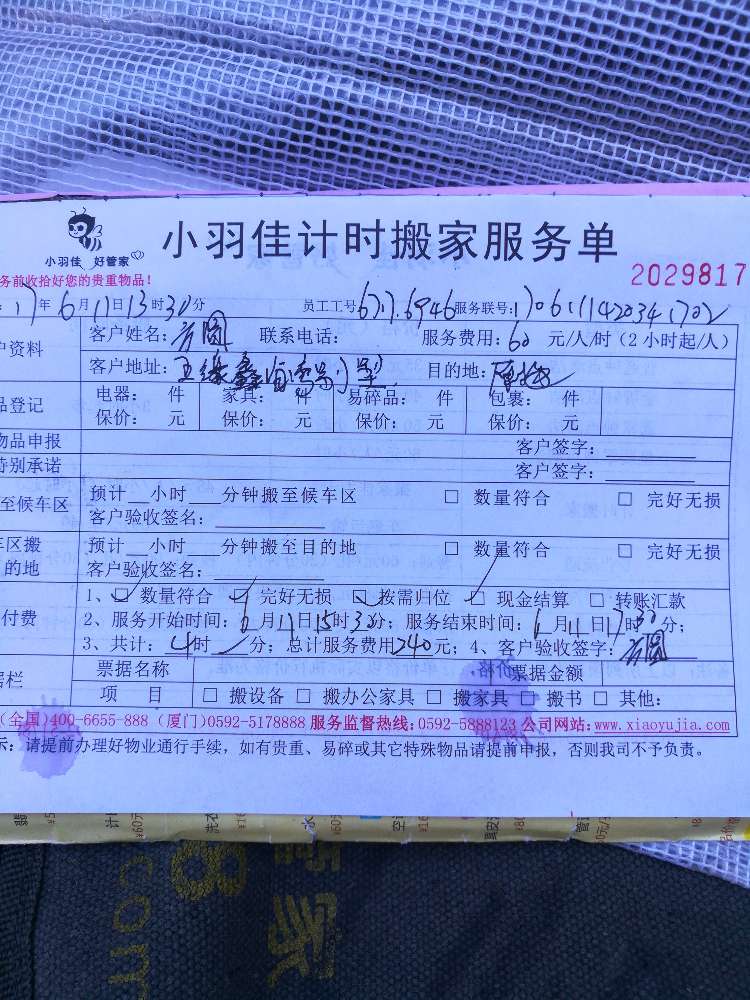 小羽佳 好管家
小羽佳计时搬家服务单
务前收拾好您的贵重物品！
2029817
17年6月11日13时30分 员工工号 服务联号:
户资料 客户姓名：方圆 联系电话： 服务费用：60 元/人/时（2小时起/人）
客户地址： 目的地：
品登记 电器： 件 家具： 件 易碎品： 件 包裹： 件
保价： 元 保价： 元 保价： 元 保价： 元
物品申报 客户签字：
特别承诺 客户签字：
至候车区 预计 小时 分钟搬至候车区 □ 数量符合 □ 完好无损
客户验收签名：
车区搬 预计 小时 分钟搬至目的地 □ 数量符合 □ 完好无损
的地 客户验收签名：
1、☑ 数量符合 ☑ 完好无损 ☑ 按需归位 ☑ 现金结算 □ 转账汇款
付费 2、服务开始时间：6月11日15时30分；服务结束时间：6月11日17时30分；
3、共计：4时 分；总计服务费用240元；4、客户验收签字：方圆
据栏 票据名称 票据金额
项 目 □ 搬设备 □ 搬办公家具 □ 搬家具 □ 搬书 □ 其他：
(全国)400-6655-888 (厦门)0592-5178888 服务监督热线:0592-5888123 公司网站:www.xiaoyujia.com
示：请提前办理好物业通行手续，如有贵重、易碎或其它特殊物品请提前申报，否则我司不予负责。